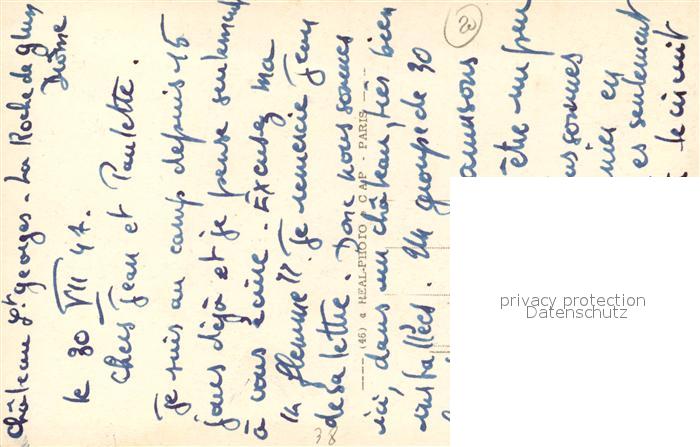 Château St georges - La Roche de glun
Drôme
le 30 VII 47.
Chers Jean et Paulette.
Je suis au camp depuis 15
jours déjà et je pense seulement
à vous écrire. Excusez ma
"flemme". Je remercie Jean
de sa lettre. Donc nous sommes
ici, dans un château, très bien
installées. Un groupe de 30
amusons
être un peu
sommes
en
es seulement
le circuit
(46) a REAL-PHOTO CAP - PARIS
20
38
privacy protection
Datenschutz